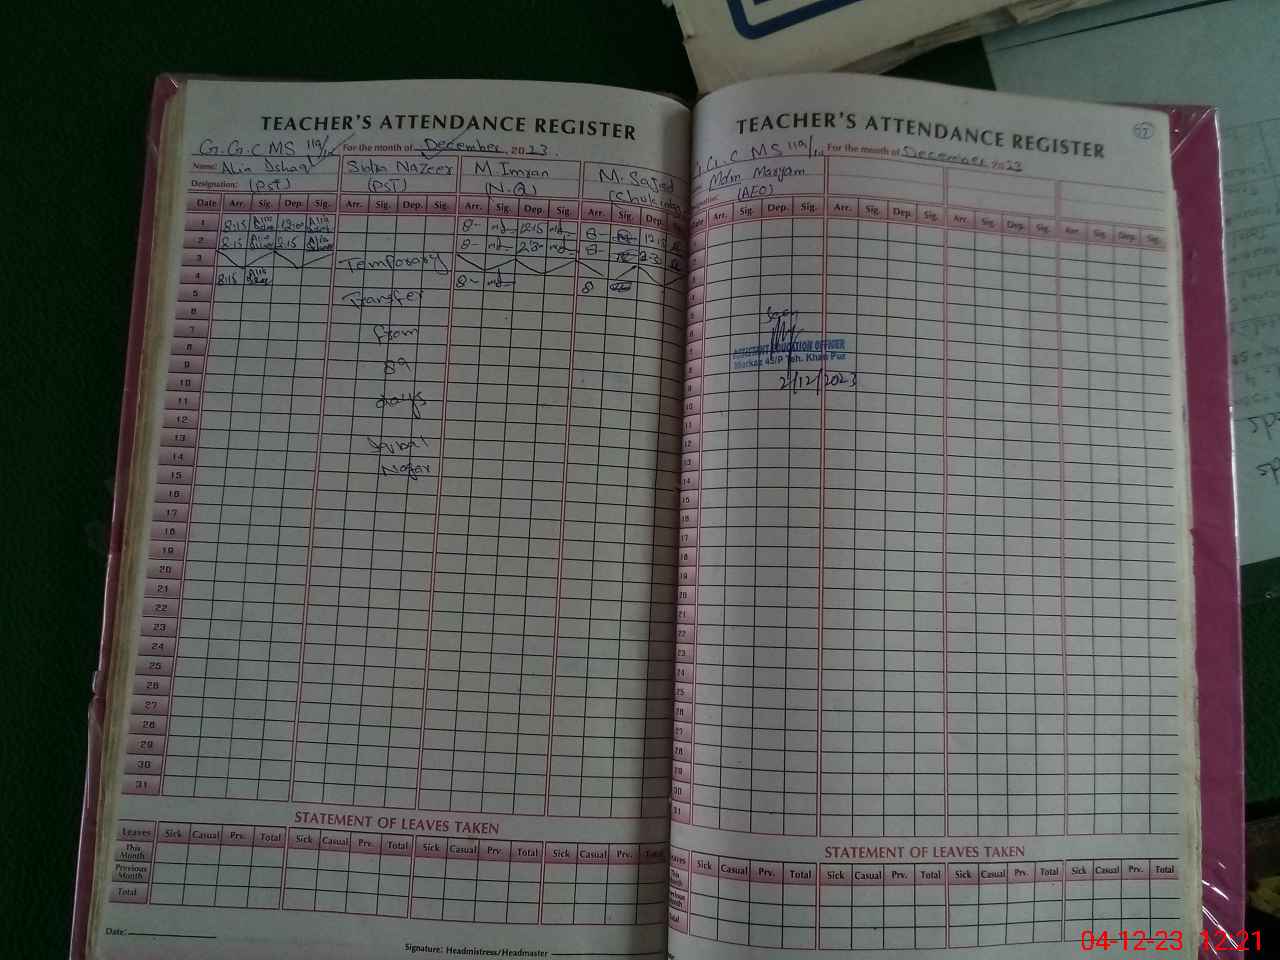 TEACHER'S ATTENDANCE REGISTER
G.G.C MS 119/ For the month of December 2023.
Name: Sidra Nazeer M. Imran M. Sajid
Designation: (PST) (PST) (N.Q)
Date Arr. Sig. Dep. Sig. Arr. Sig. Dep. Sig. Arr. Sig. Dep. Sig. Arr. Sig. Dep.
1 8:15 12:00 8- 12:15 8-
2 8:15 2:15 8- 2:30 8-
3 Temporary
4 8:15 8- 8
5 Transfer
6
7 From
8
9 89
10
11 days
12
13
14
15 Nagar
16
17
18
19
20
21
22
23
24
25
26
27
28
29
30
31
STATEMENT OF LEAVES TAKEN
Leaves Sick Casual Prv. Total Sick Casual Prv. Total Sick Casual Prv. Total Sick Casual Prv. Total
This Month
Previous Month
Total
Date:
Signature: Headmistress/Headmaster
TEACHER'S ATTENDANCE REGISTER
G.C MS 119/ For the month of December 2023
Mdm Maryam
(AEO)
Arr. Sig. Dep. Sig. Arr. Sig. Dep. Sig. Arr. Sig. Dep. Sig. Arr. Sig. Dep. Sig.
ASSISTANT EDUCATION OFFICER
Markaz 45/P Teh. Khan Pur
2/12/2023
10
11
12
13
14
15
16
17
18
19
20
21
22
23
24
25
26
27
28
29
30
31
STATEMENT OF LEAVES TAKEN
Leaves Sick Casual Prv. Total Sick Casual Prv. Total Sick Casual Prv. Total Sick Casual Prv. Total
This Month
Previous Month
Total
04-12-23 12:21